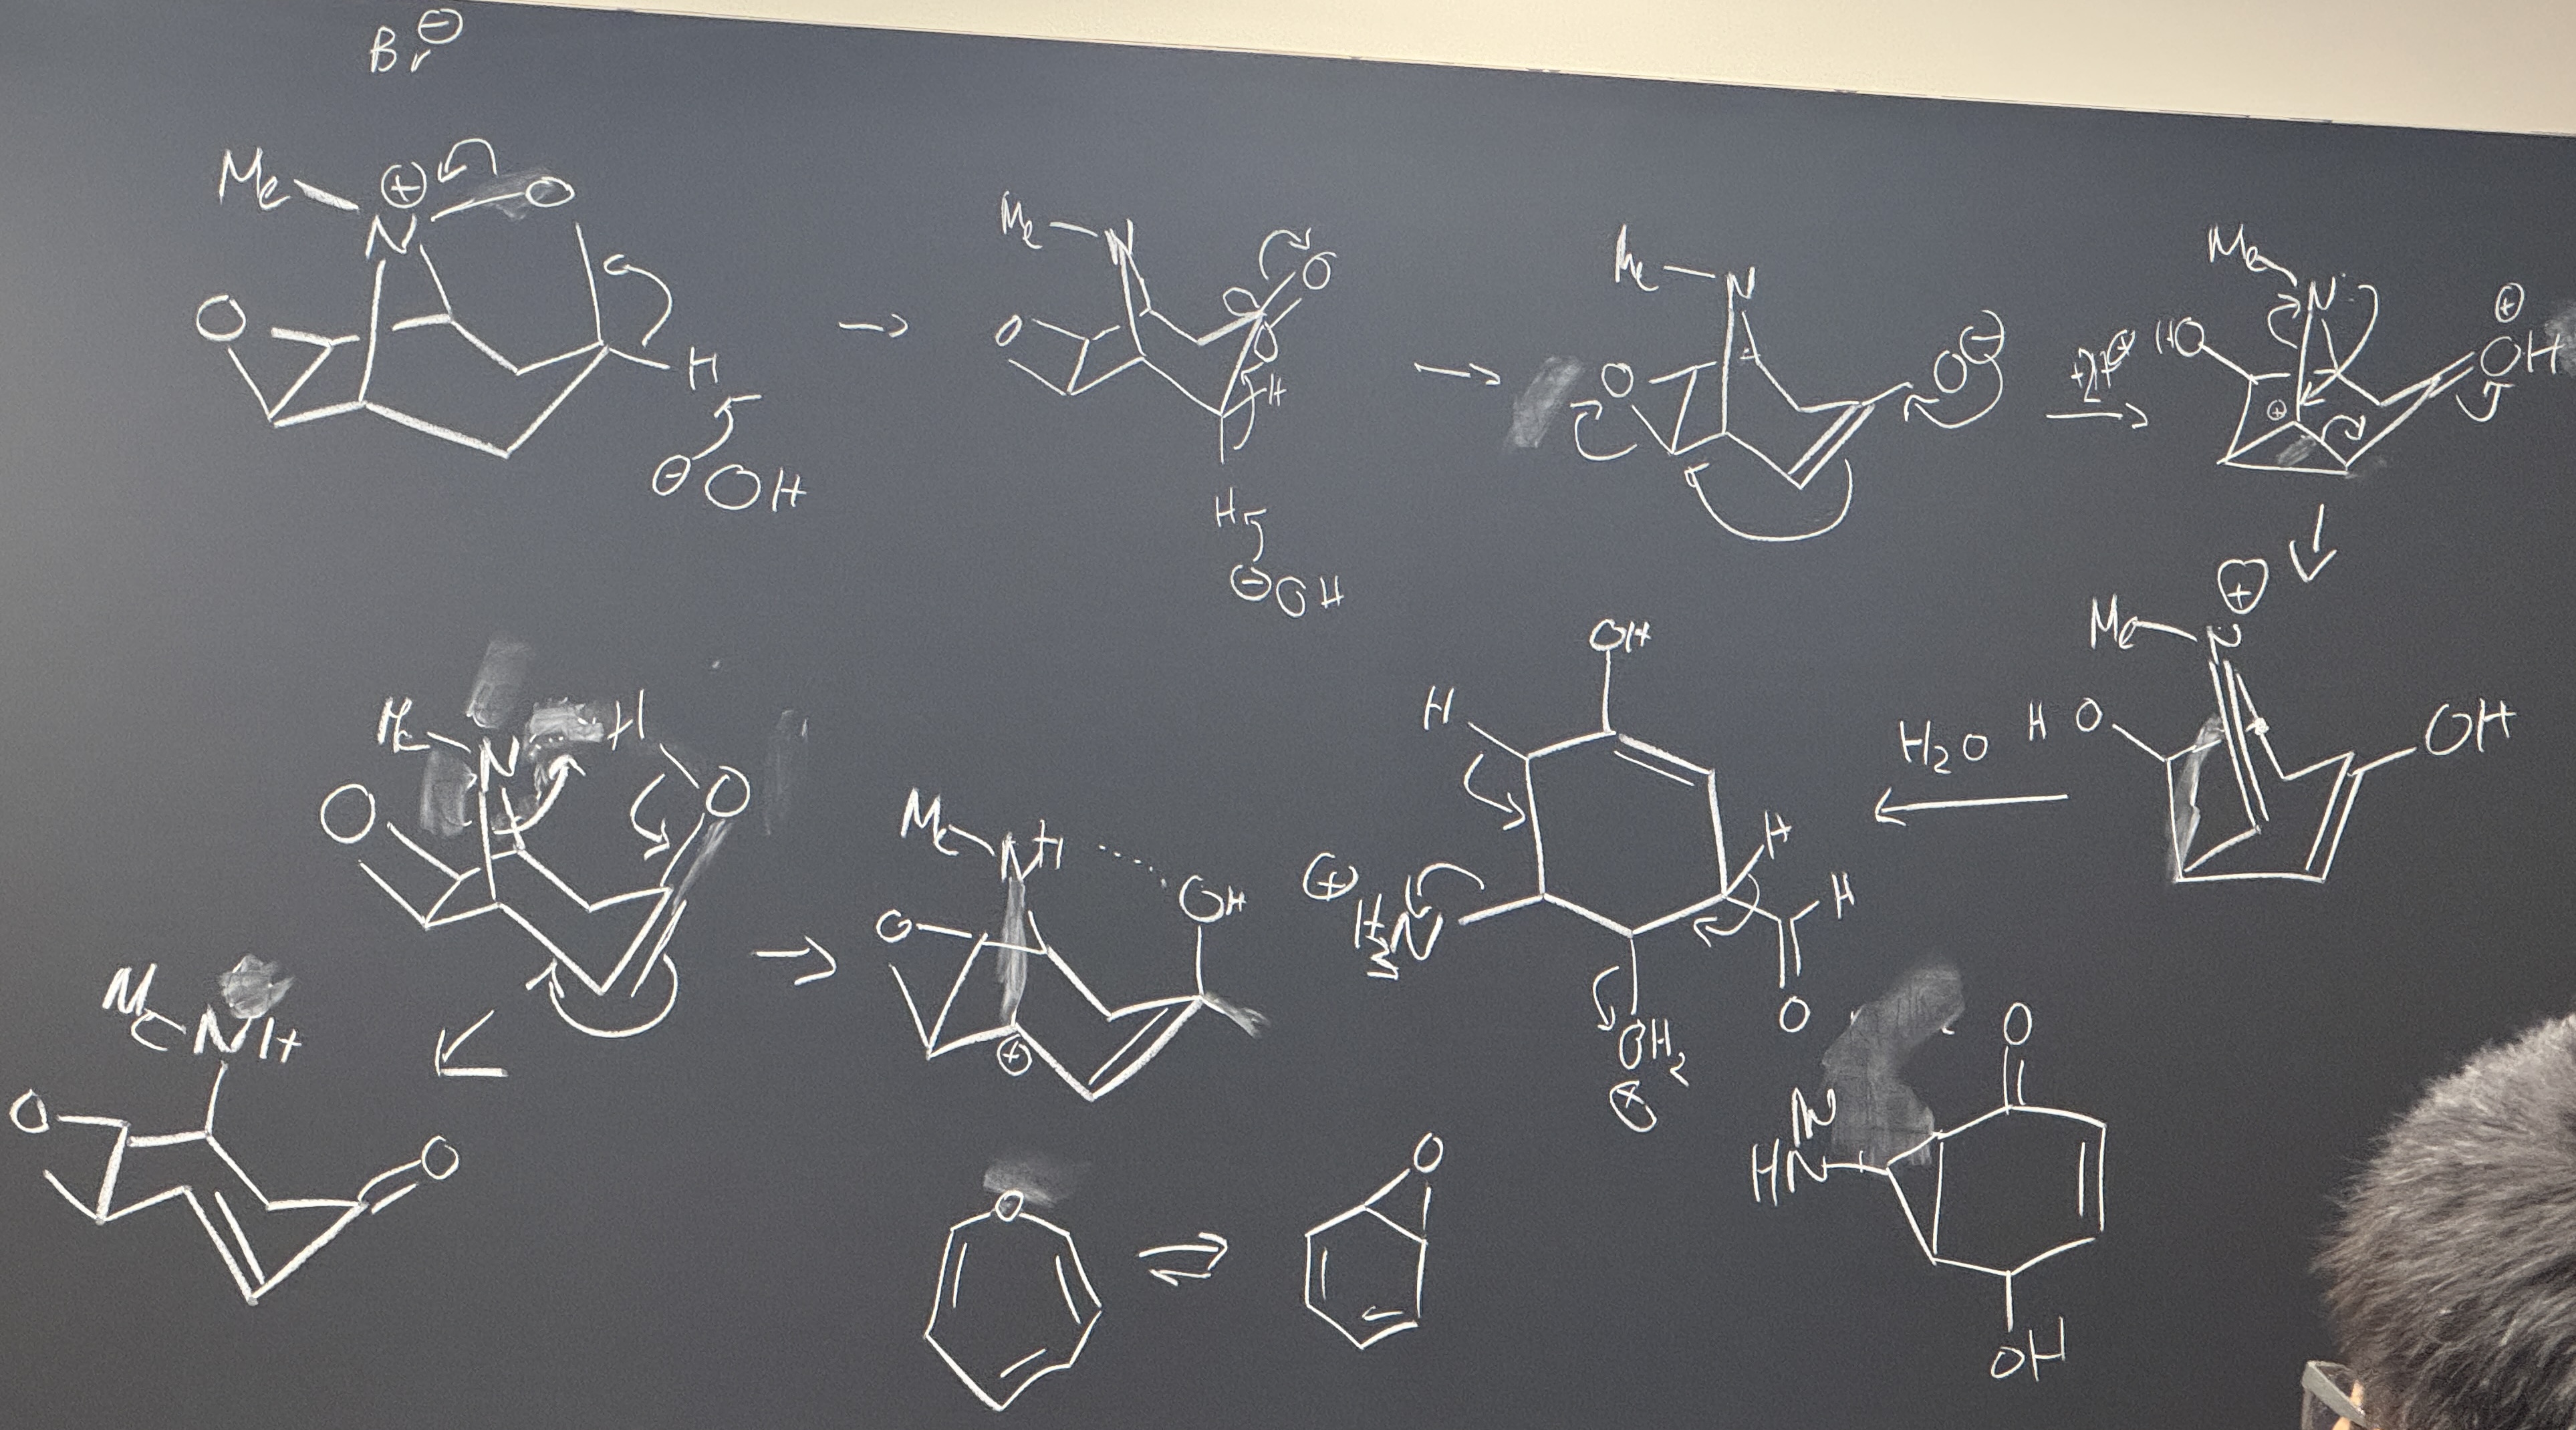 Br⊖
Me N⊕ O
O
H
⊖OH
→
Me N O
O
H
H
⊖OH
→
Me N
O O⊖
+2H⊕
→
Me N ⊕
HO OH
⊕
↓
⊕
Me N
HO OH
H2O
←
OH
H
H
⊕ H3N H
O
OH2
⊕
Me N H
O O
→
Me NH OH
O
⊕
↙
Me NH
O O
O ⇌ O
O
HN
OH